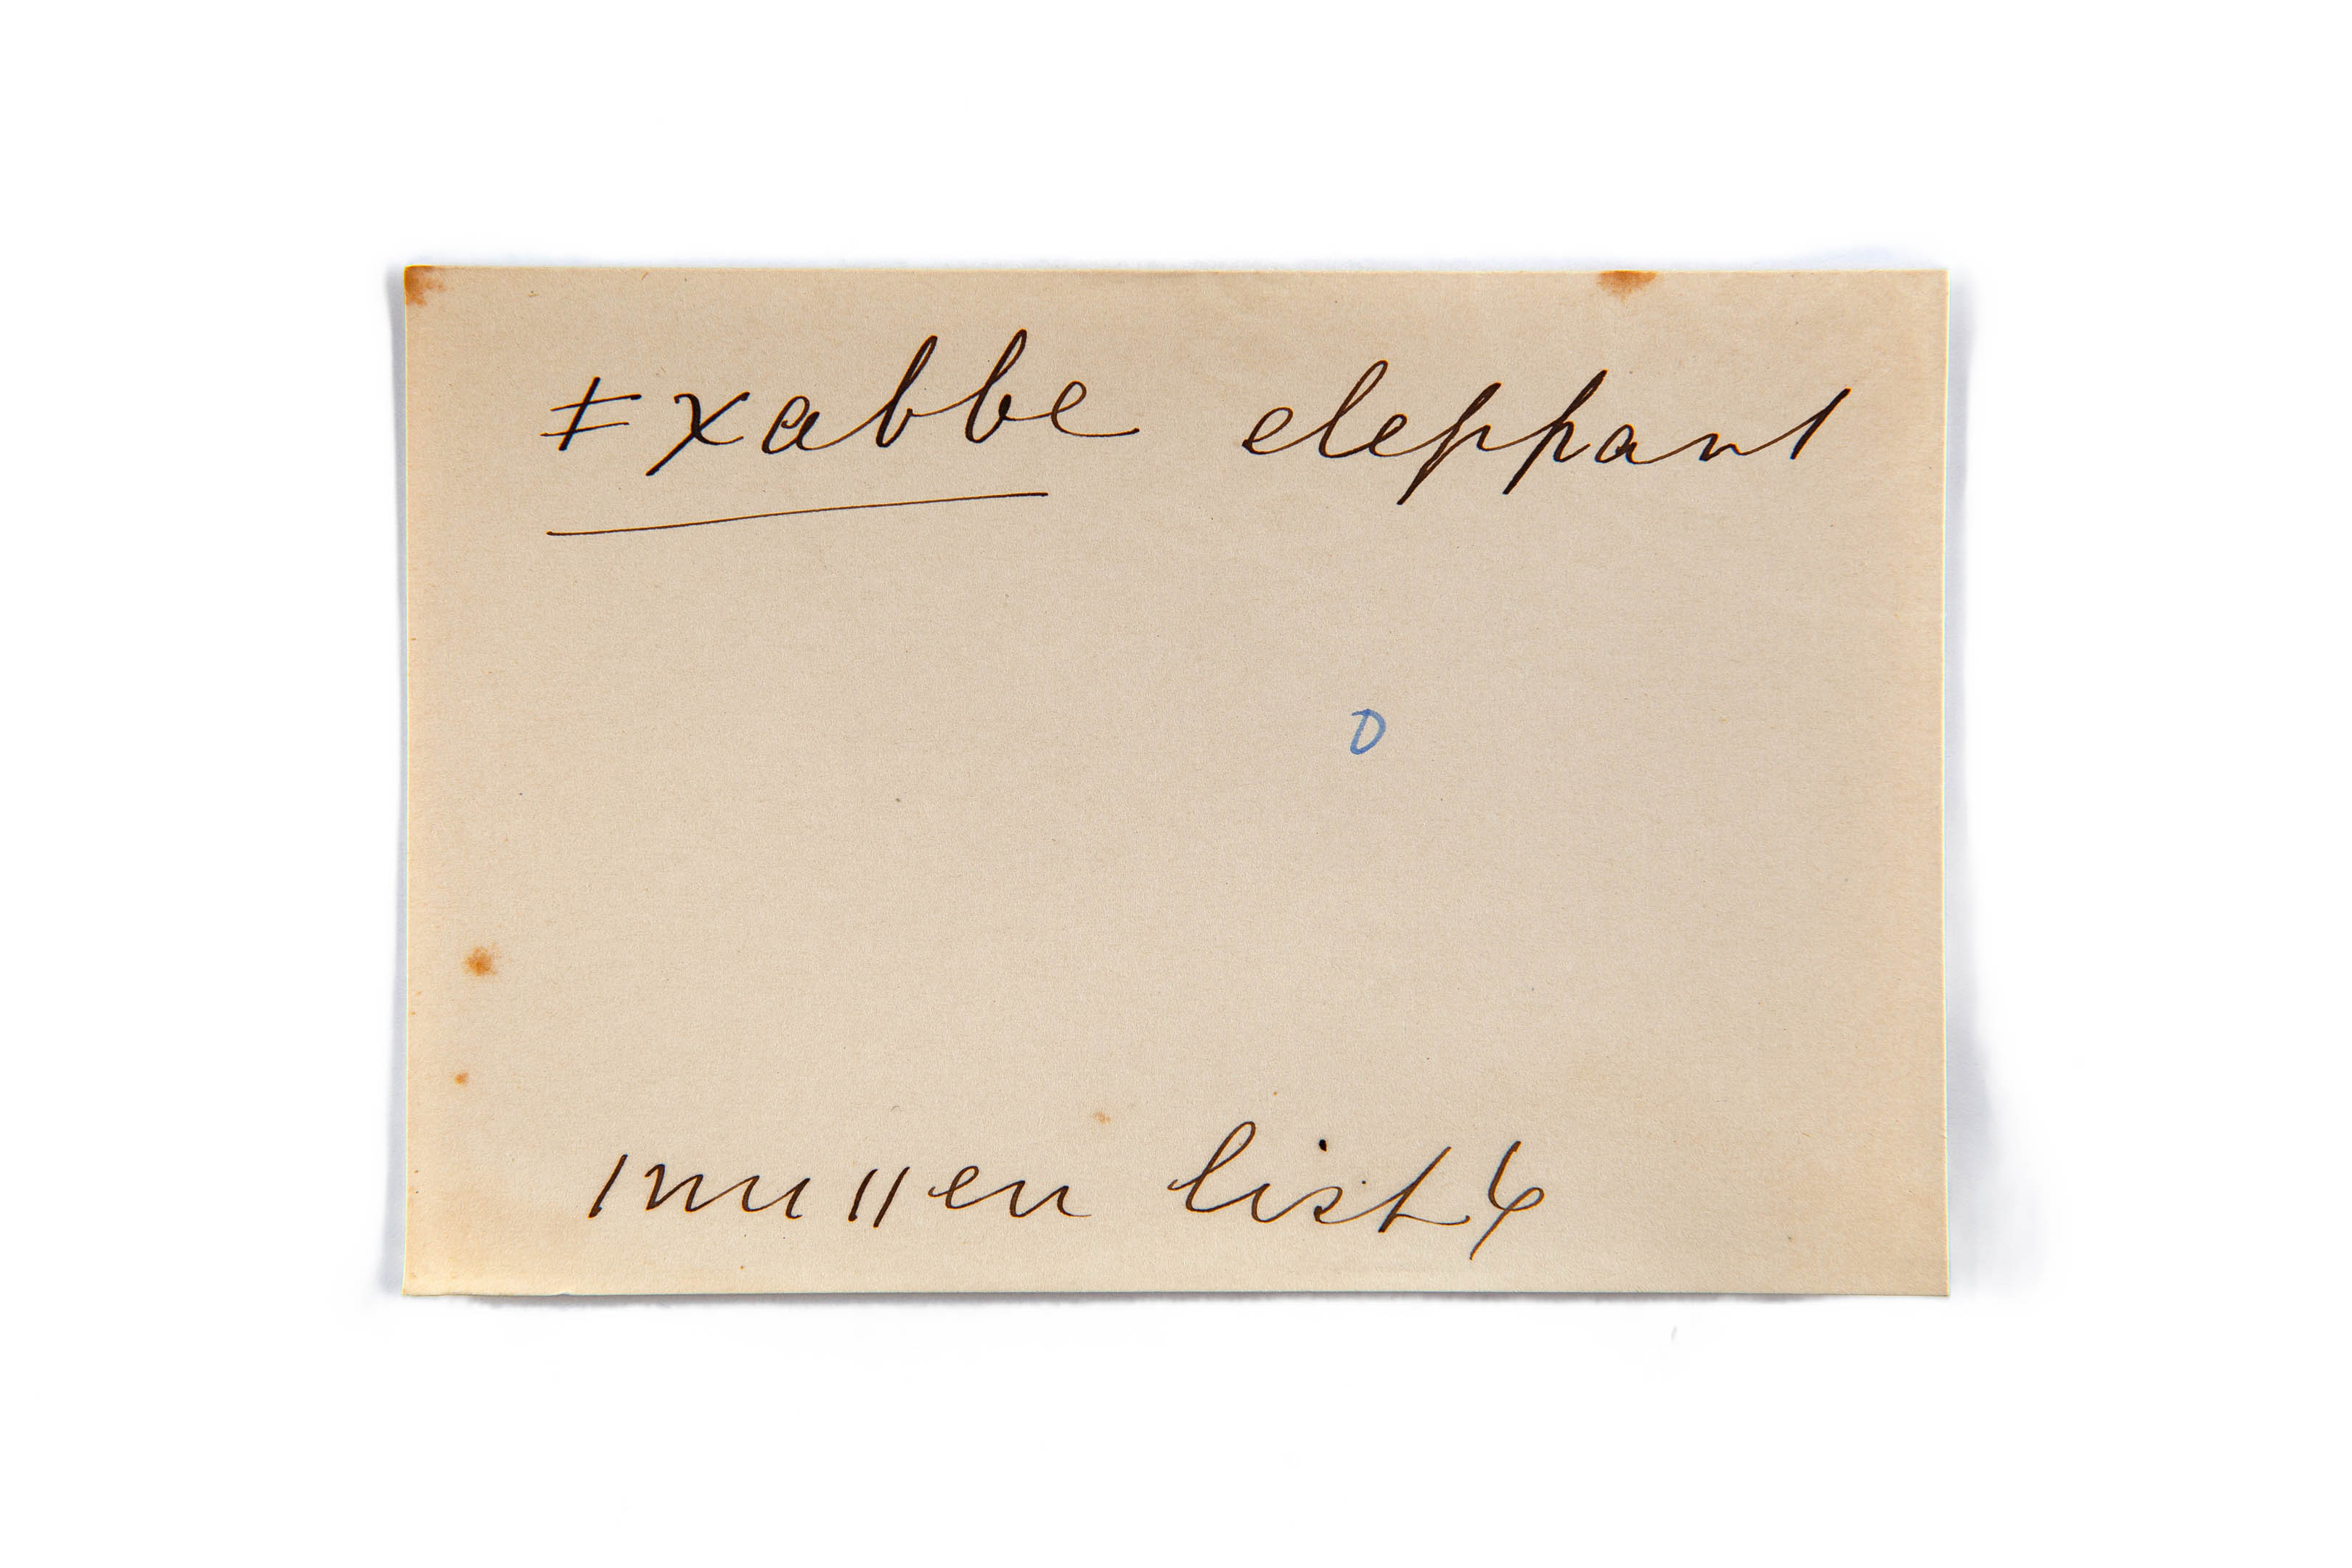 ǂxabbe elephant
D
|nu ||en list 6